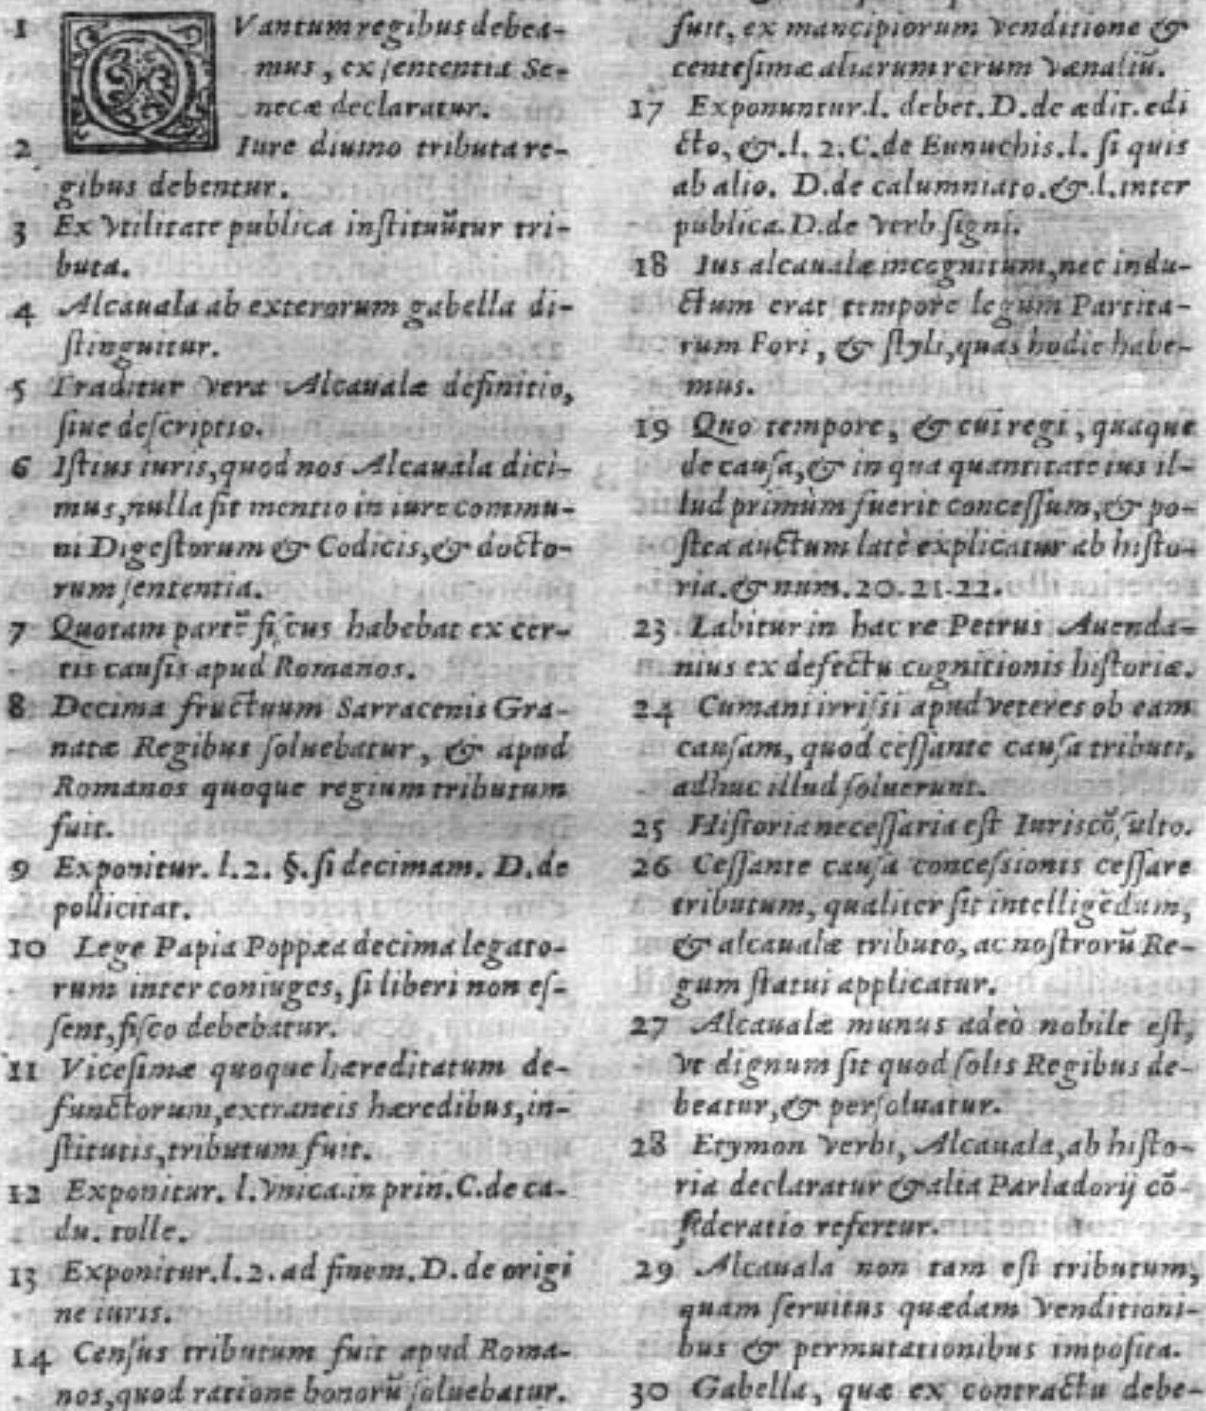 1 QVantum regibus debea-
mus, ex sententia Se-
necæ declaratur.
2 Iure diuino tributa re-
gibus debentur.
3 Ex vtilitate publica instituũtur tri-
buta.
4 Alcauala ab exterorum gabella di-
stinguitur.
5 Traditur vera Alcaualæ definitio,
siue descriptio.
6 Istius iuris, quod nos Alcauala dici-
mus, nulla fit mentio in iure commu-
ni Digestorum & Codicis, & docto-
rum sententia.
7 Quotam partẽ fiscus habebat ex cer-
tis causis apud Romanos.
8 Decima fructuum Sarracenis Gra-
natæ Regibus soluebatur, & apud
Romanos quoque regium tributum
fuit.
9 Exponitur. l. 2. §. si decimam. D. de
pollicitat.
10 Lege Papia Poppæa decima legato-
rum inter coniuges, si liberi non es-
sent, fisco debebatur.
11 Vicesimæ quoque hæreditatum de-
functorum, extraneis hæredibus, in-
stitutis, tributum fuit.
12 Exponitur. l. vnica. in prin. C. de ca-
du. tolle.
13 Exponitur. l. 2. ad finem. D. de origi
ne iuris.
14 Census tributum fuit apud Roma-
nos, quod ratione bonorũ soluebatur.
fuit, ex mancipiorum venditione &
centesimæ aliarum rerum vænaliũ.
17 Exponuntur. l. debet. D. de ædit. edi
cto, &. l. 2. C. de Eunuchis. l. si quis
ab alio. D. de calumniato. &. l. inter
publica. D. de verb signi.
18 Ius alcaualæ incognitum, nec indu-
ctum erat tempore legum Partita-
rum Fori, & styli, quas hodie habe-
mus.
19 Quo tempore, & cui regi, quaque
de causa, & in qua quantitate ius il-
lud primùm fuerit concessum, & po-
stea auctum latè explicatur ab histo-
ria. & num. 20. 21. 22.
23 Labitur in hac re Petrus Auenda-
nius ex defectu cognitionis historiæ.
24 Cumani irrisi apud veteres ob eam
causam, quod cessante causa tributi,
adhuc illud soluerunt.
25 Historia necessaria est Iuriscõsulto.
26 Cessante causa concessionis cessare
tributum, qualiter sit intelligẽdum,
& alcaualæ tributo, ac nostrorũ Re-
gum statui applicatur.
27 Alcaualæ munus adeò nobile est,
vt dignum sit quod solis Regibus de-
beatur, & persoluatur.
28 Etymon verbi, Alcauala, ab histo-
ria declaratur & alia Parladorij cõ-
sideratio refertur.
29 Alcauala non tam est tributum,
quam seruitus quædam venditioni-
bus & permutationibus imposita.
30 Gabella, quæ ex contractu debe-